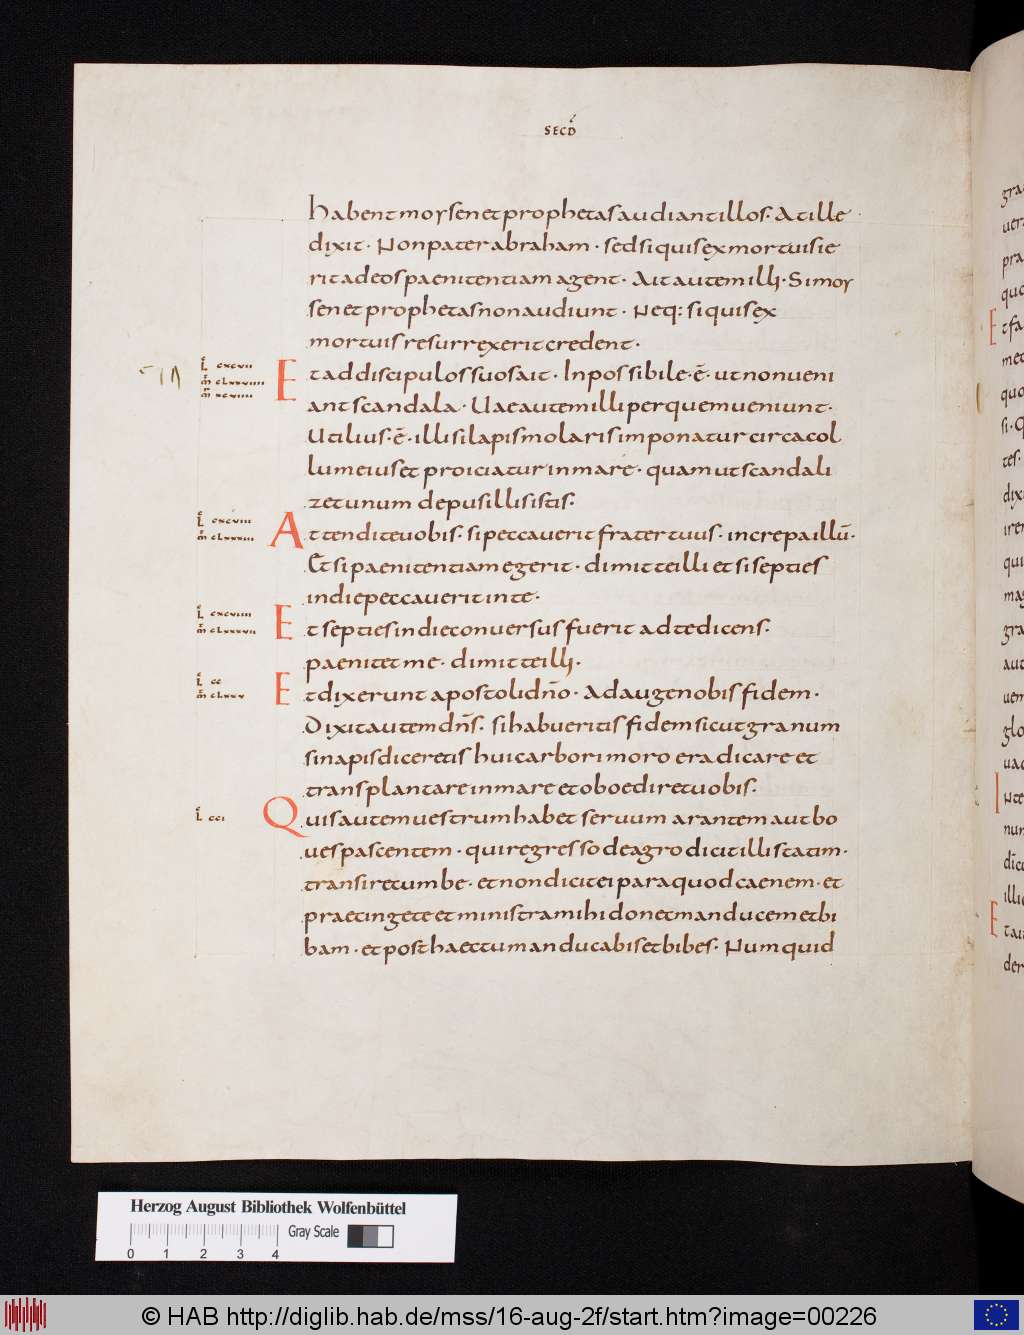 SECD̄
habent moysen et prophetas audiant illos. At ille
dixit. Non pater abraham. sed si quis ex mortuis ie
rit ad eos paenitentiam agent. Ait autem illi. Si moy
sen et prophetas non audiunt. Neq: si quis ex
mortuis resurrexerit credent.
L cxcvii
m̄ clxxviiii
m̄ xcviiii
Et ad discipulos suos ait. Inpossibile .ē. ut non veni
ant scandala. Uae autem illi per quem veniunt.
Utilius .ē. illi si lapis molaris imponatur circa col
lum eius et proiciatur in mare. quam ut scandali
zet unum de pusillis istis.
L cxcviii
Attendite vobis. si peccaverit frater tuus. increpa illū.
Et si paenitentiam egerit. dimitte illi et si septies
in die peccaverit in te.
L cxcviiii
Et septies in die conversus fuerit ad te dicens.
paenitet me. dimitte illi.
L cc
m̄ clxxv
Et dixerunt apostoli dn̄o. Adauge nobis fidem.
Dixit autem dn̄s. si habueritis fidem sicut granum
sinapis diceretis huic arbori moro eradicare et
transplantare in mare et oboediret vobis.
L cci
Quis autem vestrum habet servum arantem aut bo
ves pascentem. qui regresso de agro dicit illi statim.
transi recumbe. et non dicit ei para quod caenem. et
praecinge te et ministra mihi donec manducem et bi
bam. et post haec tu manducabis et bibes. Numquid
Herzog August Bibliothek Wolfenbüttel
Gray Scale
0 1 2 3 4
© HAB http://diglib.hab.de/mss/16-aug-2f/start.htm?image=00226